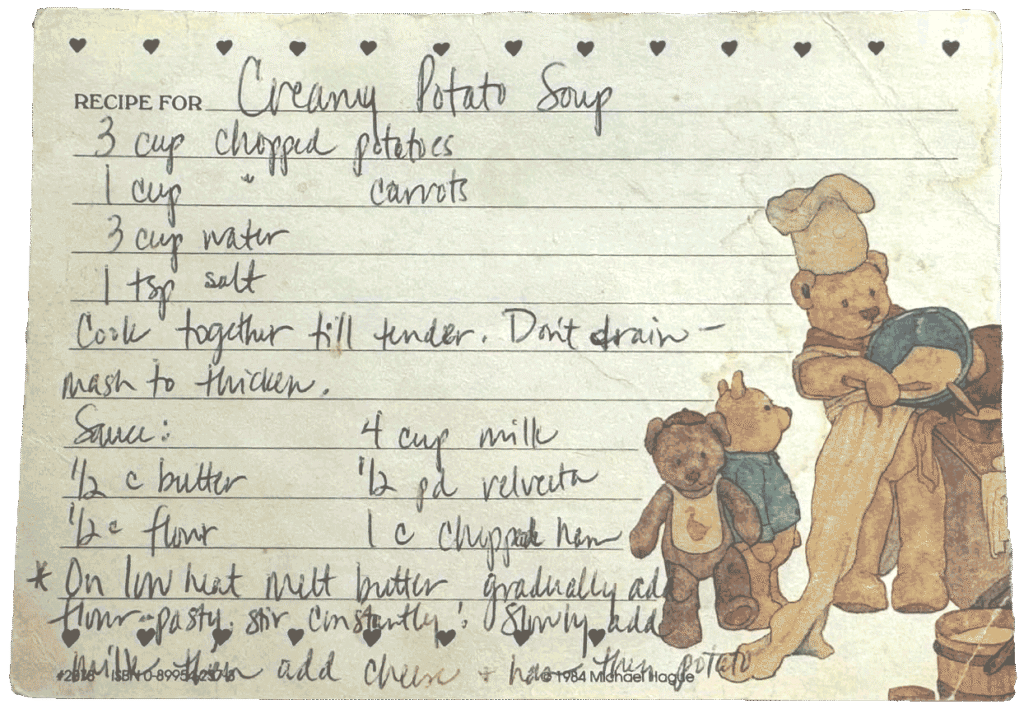 RECIPE FOR Creamy Potato Soup
3 cup chopped potatoes
1 cup " carrots
3 cup water
1 tsp salt
Cook together till tender. Don't drain -
mash to thicken.
Sauce: 4 cup milk
1/2 c butter 1/2 pd velveeta
1/2 c flour 1 c chopped ham
* On low heat melt butter gradually add
flour - pasty. stir constantly! Slowly add
milk then add cheese + ham then potato
ISBN 0-89954-257-5 © 1984 Michael Hague